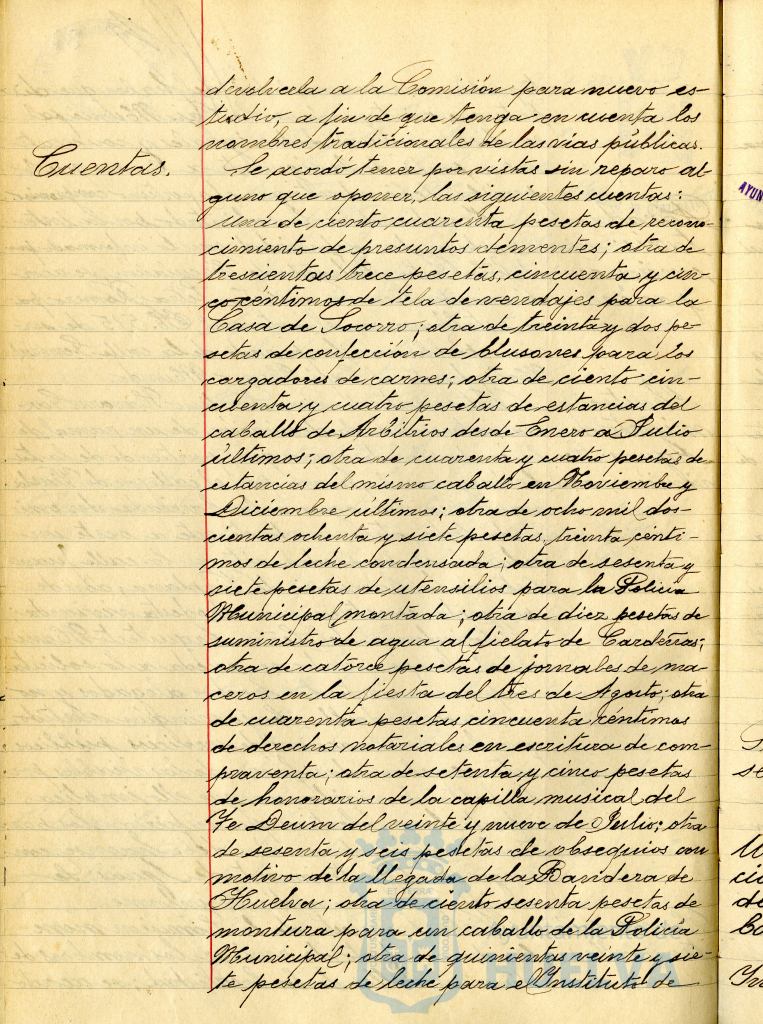 devolverla a la Comisión para nuevo es-
tudio, a fin de que tenga en cuenta los
nombres tradicionales de las vías públicas.
Cuentas.
Se acordó tener por vistas sin reparo al-
guno que oponer, las siguientes cuentas:
una de ciento cuarenta pesetas de recono-
cimiento de presuntos dementes; otra de
trescientas trece pesetas, cincuenta y cin-
co céntimos de tela de vendajes para la
Casa de Socorro; otra de treinta y dos pe-
setas de confección de blusones para los
cargadores de carnes; otra de ciento cin-
cuenta y cuatro pesetas de estancias del
caballo de Arbitrios desde Enero a Julio
últimos; otra de cuarenta y cuatro pesetas de
estancias del mismo caballo en Noviembre y
Diciembre últimos; otra de ocho mil dos-
cientas ochenta y siete pesetas, treinta cénti-
mos de leche condensada; otra de sesenta y
siete pesetas de utensilios para la Policía
Municipal montada; otra de diez pesetas de
suministro de agua al fielato de Cardeñas;
otra de catorce pesetas de jornales de ma-
ceros en la fiesta del tres de Agosto; otra
de cuarenta pesetas cincuenta céntimos
de derechos notariales en escritura de com-
praventa; otra de setenta y cinco pesetas
de honorarios de la capilla musical del
Te Deum del veinte y nueve de Julio; otra
de sesenta y seis pesetas de obsequios con
motivo de la llegada de la Bandera de
Huelva; otra de ciento sesenta pesetas de
montura para un caballo de la Policía
Municipal; otra de quinientas veinte y sie-
te pesetas de leche para el Instituto de
AYUN
HUELVA